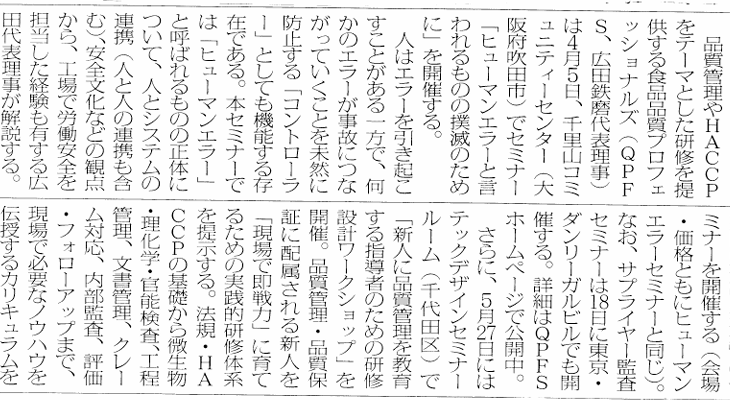 品質管理やHACCP
をテーマとした研修を提
供する食品品質プロフェ
ッショナルズ(QPF
S、広田鉄磨代表理事)
は4月5日、千里山コミ
ュニティーセンター(大
阪府吹田市)でセミナー
「ヒューマンエラーと言
われるものの撲滅のため
に」を開催する。
人はエラーを引き起こ
すことがある一方で、何
かのエラーが事故につな
がっていくことを未然に
防止する「コントローラ
ー」としても機能する存
在である。本セミナーで
は「ヒューマンエラー」
と呼ばれるものの正体に
ついて、人とシステムの
連携(人と人の連携も含
む)、安全文化などの観点
から、工場で労働安全を
担当した経験も有する広
田代表理事が解説する。
ミナーを開催する(会場
・価格ともにヒューマン
エラーセミナーと同じ)。
なお、サプライヤー監査
セミナーは18日に東京・
ダンリーガルビルでも開
催する。詳細はQPFS
ホームページで公開中。
さらに、5月27日には
テックデザインセミナー
ルーム(千代田区)で
「新人に品質管理を教育
する指導者のための研修
設計ワークショップ」を
開催。品質管理・品質保
証に配属される新人を
「現場で即戦力」に育て
るための実践的研修体系
を提示する。法規・HA
CCPの基礎から微生物
・理化学・官能検査、工程
管理、文書管理、クレー
ム対応、内部監査、評価
・フォローアップまで、
現場で必要なノウハウを
伝授するカリキュラムを